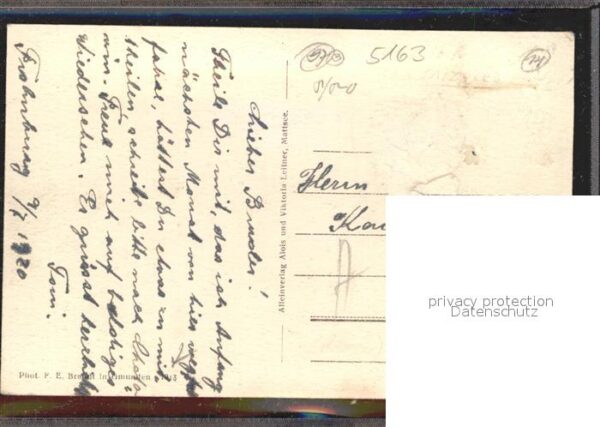 Lieber Bruder!
Theile Dir mit, das ich Anfang
nächsten Monat von hier
fahre, hättest Du etwas zu mit-
theilen, schreibe bitte nach
mir. Freue mich auf baldiges
Wiedersehen. Es grüsst herzlich
Toni.
9/7 1920
Herrn
5163
Alleinverlag Alois und Viktoria Leitner, Mattsee.
Phot. F. E. Brandt
privacy protection
Datenschutz